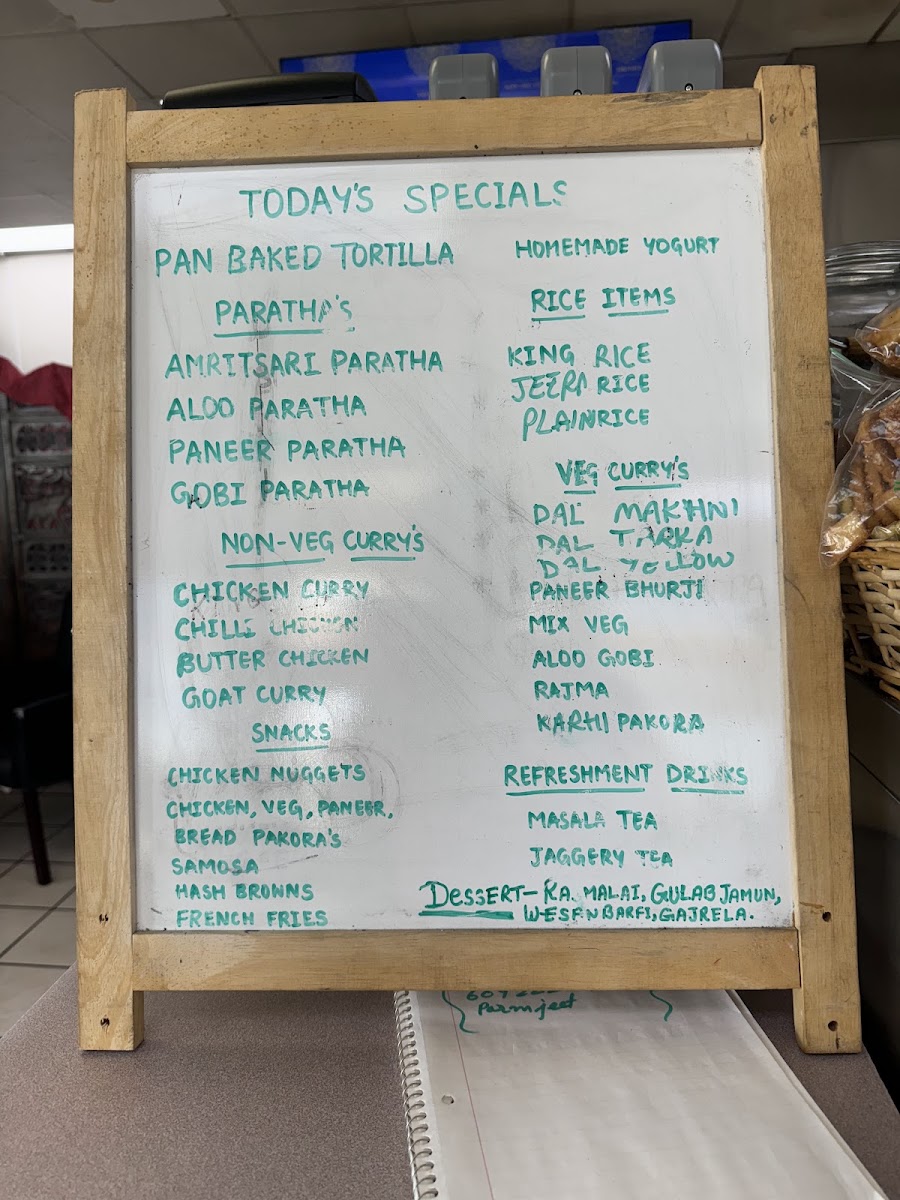 TODAY'S SPECIALS
PAN BAKED TORTILLA
PARATHA'S
AMRITSARI PARATHA
ALOO PARATHA
PANEER PARATHA
GOBI PARATHA
NON-VEG CURRY'S
CHICKEN CURRY
CHILLI CHICKEN
BUTTER CHICKEN
GOAT CURRY
SNACKS
CHICKEN NUGGETS
CHICKEN, VEG, PANEER,
BREAD PAKORA'S
SAMOSA
HASH BROWNS
FRENCH FRIES
HOMEMADE YOGURT
RICE ITEMS
KING RICE
JEERA RICE
PLAIN RICE
VEG CURRY'S
DAL MAKHNI
DAL TARKA
DAL YELLOW
PANEER BHURJI
MIX VEG
ALOO GOBI
RAJMA
KARHI PAKORA
REFRESHMENT DRINKS
MASALA TEA
JAGGERY TEA
DESSERT- RA. MALAI, GULAB JAMUN,
WESEN BARFI, GAJRELA.
Parmjeet